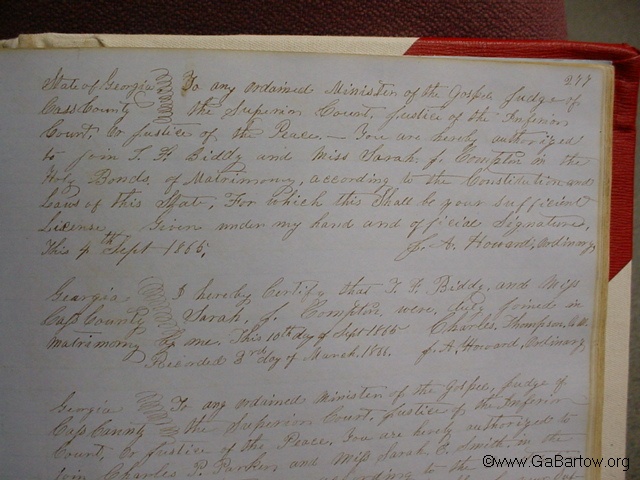 277
State of Georgia To any ordained Minister of the Gospel, Judge of
Cass County the Superior Court, Justice of the Inferior
Court, Or Justice of the Peace. — You are hereby authorized
to join T. F. Biddy and Miss Sarah. J. Compton in the
Holy Bonds, of Matrimony, according to the Constitution and
Laws of this State, For which this Shall be your sufficient
License. Given under my hand and official Signature,
This 4th Sept 1865, J. A. Howard, Ordinary
Georgia I hereby Certify that T. F. Biddy, and Miss
Cass County Sarah, J. Compton, were duly joined in
matrimony by me. This 10th day of Sept 1865 Charles Thompson,
Recorded 3rd day of March. 1866. J. A. Howard, Ordinary
Georgia To any ordained Minister of the Gospel, Judge of
Cass County the Superior Court, Justice of the Inferior
Court, Or Justice of the Peace, You are hereby authorized to
join Charles P. Parker, and Miss Sarah E. Smith in the
according to the
©www.GaBartow.org